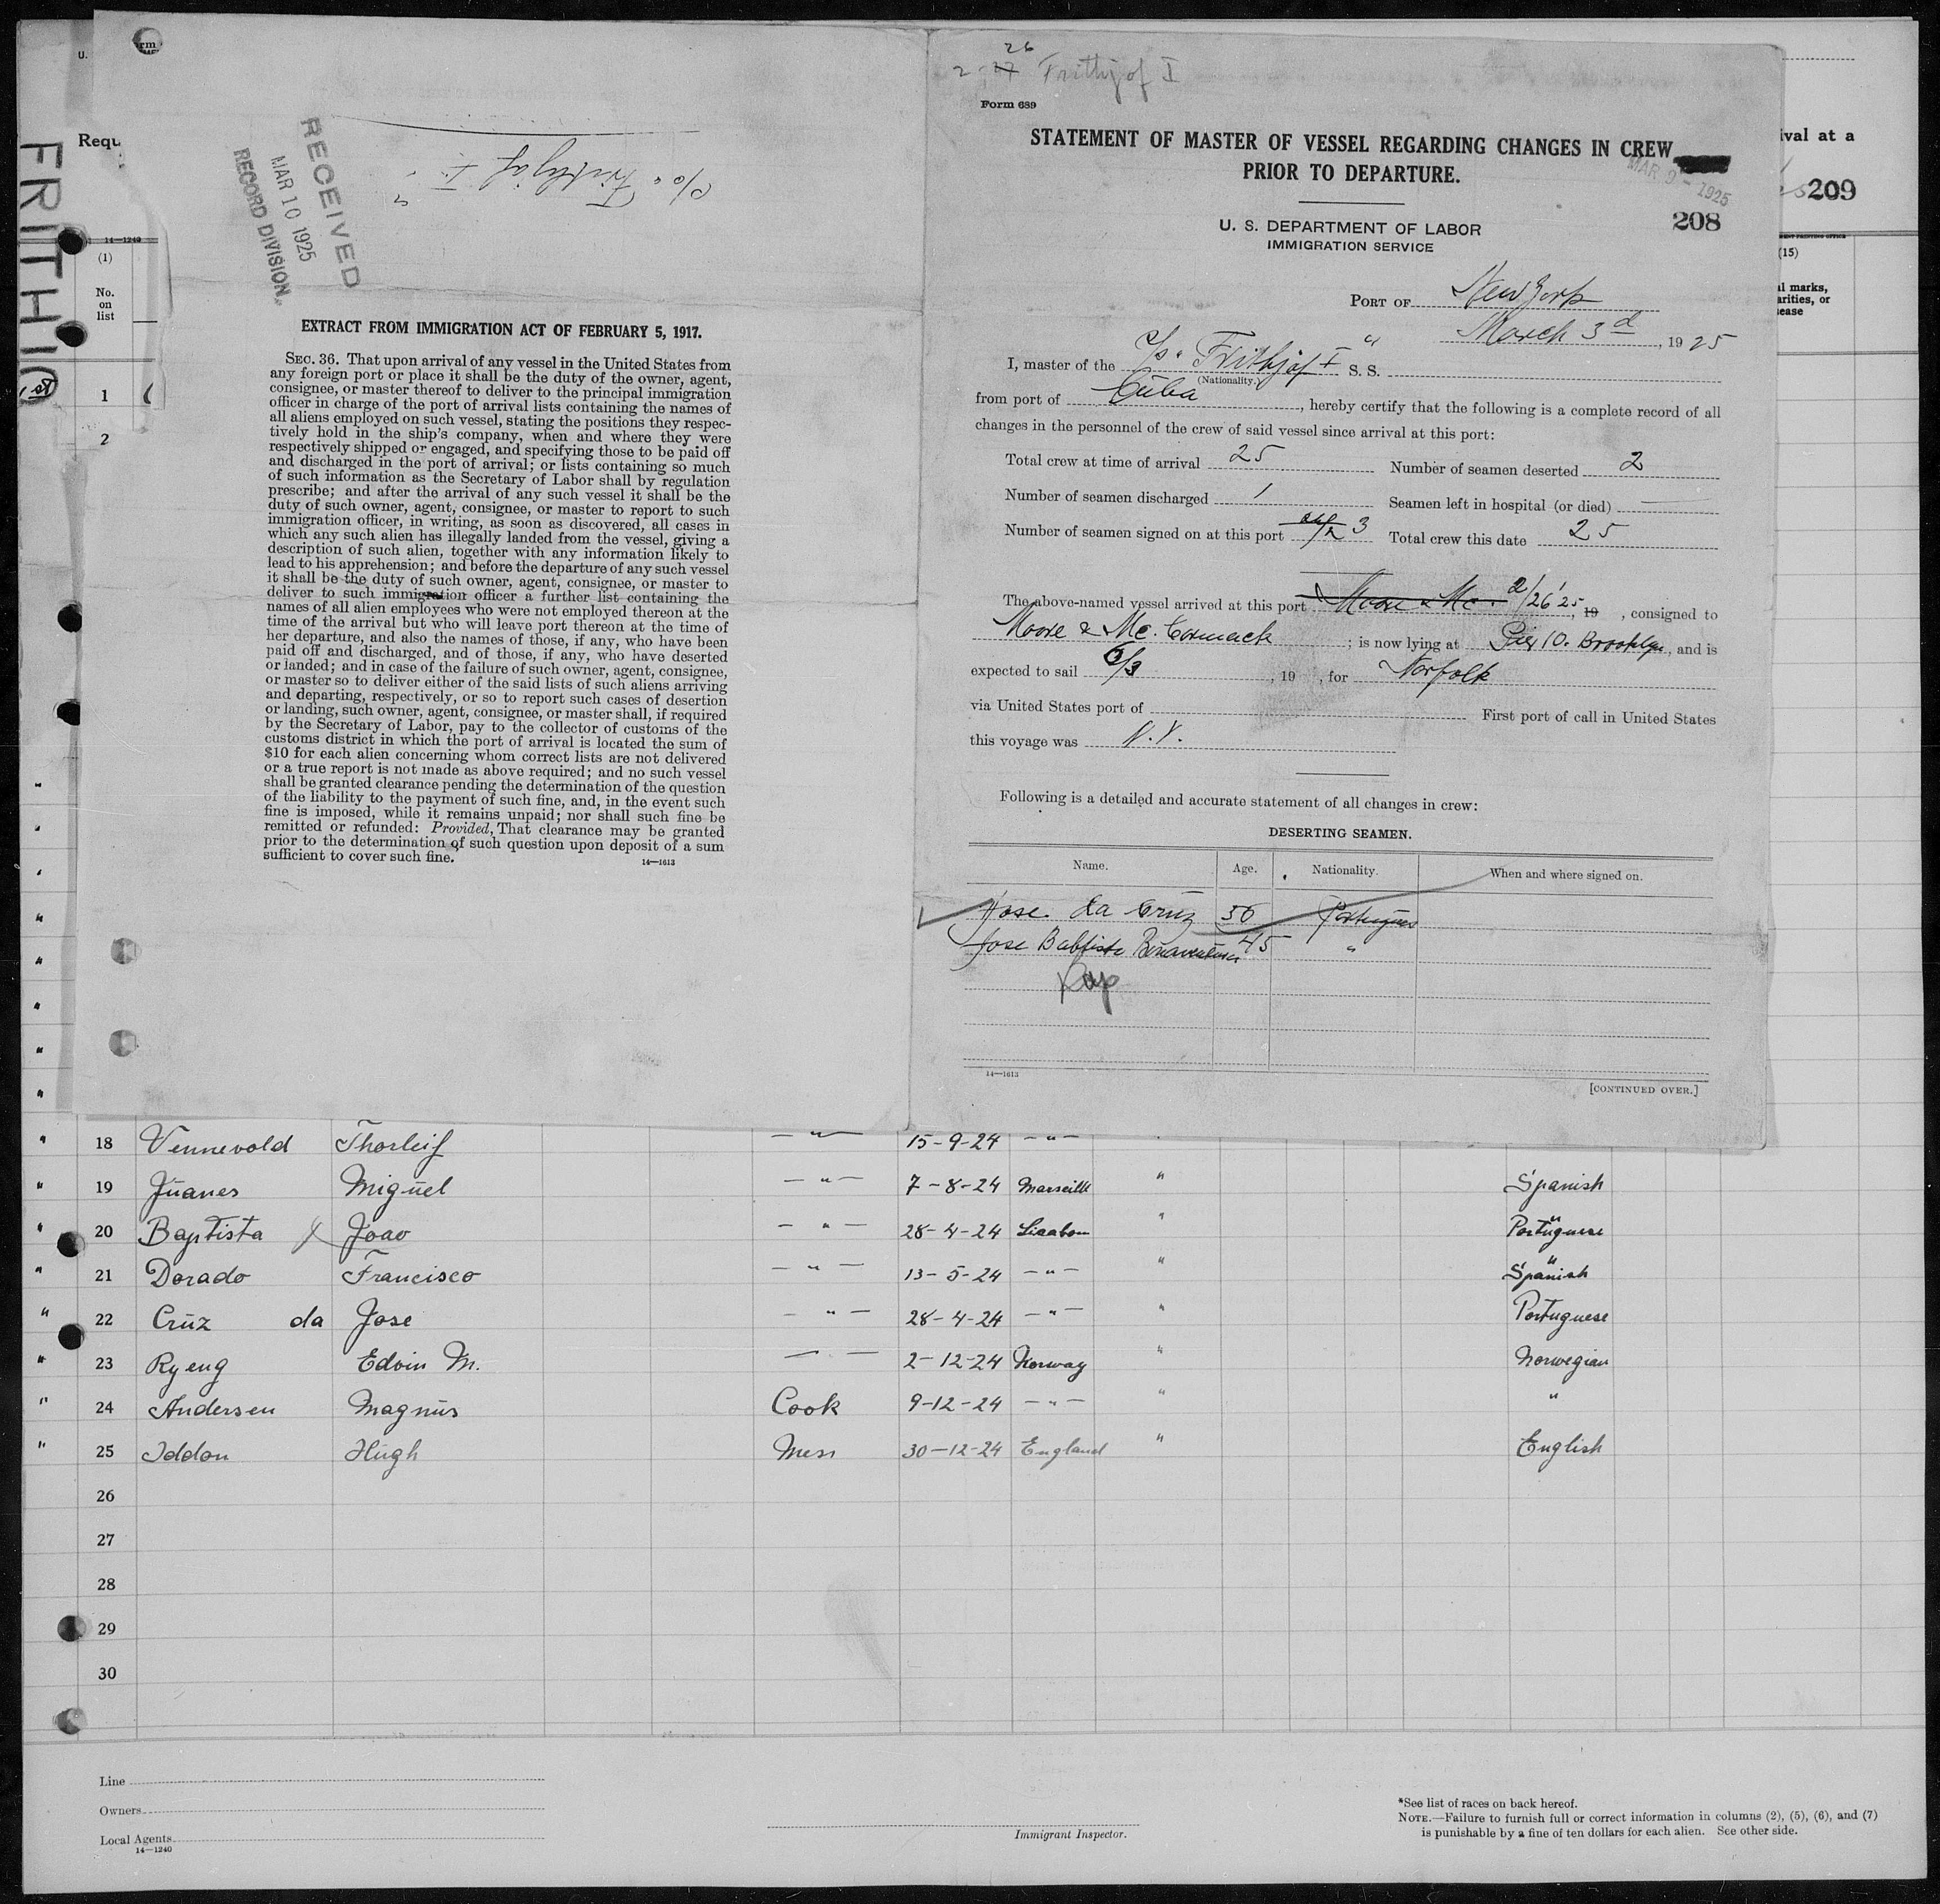 U.
rm
FRITHJO
1 st
Requ
14—1240
(1)
No.
on
list
1
2
RECEIVED
MAR 10 1925
RECORD DIVISION.
S/S "Frithjof I"
EXTRACT FROM IMMIGRATION ACT OF FEBRUARY 5, 1917.
SEC. 36. That upon arrival of any vessel in the United States from
any foreign port or place it shall be the duty of the owner, agent,
consignee, or master thereof to deliver to the principal immigration
officer in charge of the port of arrival lists containing the names of
all aliens employed on such vessel, stating the positions they respec-
tively hold in the ship's company, when and where they were
respectively shipped or engaged, and specifying those to be paid off
and discharged in the port of arrival; or lists containing so much
of such information as the Secretary of Labor shall by regulation
prescribe; and after the arrival of any such vessel it shall be the
duty of such owner, agent, consignee, or master to report to such
immigration officer, in writing, as soon as discovered, all cases in
which any such alien has illegally landed from the vessel, giving a
description of such alien, together with any information likely to
lead to his apprehension; and before the departure of any such vessel
it shall be the duty of such owner, agent, consignee, or master to
deliver to such immigration officer a further list containing the
names of all alien employees who were not employed thereon at the
time of the arrival but who will leave port thereon at the time of
her departure, and also the names of those, if any, who have been
paid off and discharged, and of those, if any, who have deserted
or landed; and in case of the failure of such owner, agent, consignee,
or master so to deliver either of the said lists of such aliens arriving
and departing, respectively, or so to report such cases of desertion
or landing, such owner, agent, consignee, or master shall, if required
by the Secretary of Labor, pay to the collector of customs of the
customs district in which the port of arrival is located the sum of
$10 for each alien concerning whom correct lists are not delivered
or a true report is not made as above required; and no such vessel
shall be granted clearance pending the determination of the question
of the liability to the payment of such fine, and, in the event such
fine is imposed, while it remains unpaid; nor shall such fine be
remitted or refunded: Provided, That clearance may be granted
prior to the determination of such question upon deposit of a sum
sufficient to cover such fine.
14—1613
26
2-27 Frithjof I
Form 689
STATEMENT OF MASTER OF VESSEL REGARDING CHANGES IN CREW
PRIOR TO DEPARTURE.
MAR 9 - 1925
208
U. S. DEPARTMENT OF LABOR
IMMIGRATION SERVICE
PORT OF New York
March 3d, 1925
I, master of the S/S "Frithjof I" S. S.
(Nationality.)
from port of Cuba, hereby certify that the following is a complete record of all
changes in the personnel of the crew of said vessel since arrival at this port:
Total crew at time of arrival 25 Number of seamen deserted 2
Number of seamen discharged 1 Seamen left in hospital (or died) —
Number of seamen signed on at this port 3 Total crew this date 25
The above-named vessel arrived at this port Moore & Mc. 2/26'25, 19 , consigned to
Moore & Mc. Cormack ; is now lying at Pier 10. Brooklyn, and is
expected to sail 6/3, 19 , for Norfolk
via United States port of First port of call in United States
this voyage was N.Y.
Following is a detailed and accurate statement of all changes in crew:
DESERTING SEAMEN.
Name. Age. Nationality. When and where signed on.
Jose da Cruz 50 Portugues
Jose Babtista Benaventura 45 "
14—1613
[CONTINUED OVER.]
val at a
209
(15)
al marks,
arities, or
ease
" 18 Vennevold Thorleif — " — 15-9-24 — " —
" 19 Juanes Miguel — " — 7-8-24 Marseille " Spanish
" 20 Baptista Joao — " — 28-4-24 Lissabon " Portuguese
" 21 Dorado Francisco — " — 13-5-24 — " — " Spanish
" 22 Cruz da Jose — " — 28-4-24 — " — " Portuguese
" 23 Ryeng Edvin M. — — 2-12-24 Norway " Norwegian
" 24 Andersen Magnus Cook 9-12-24 — " — " "
" 25 Iddon Hugh Mess 30-12-24 England " English
26
27
28
29
30
Line
Owners
Local Agents
14—1240
Immigrant Inspector.
*See list of races on back hereof.
NOTE.—Failure to furnish full or correct information in columns (2), (5), (6), and (7)
is punishable by a fine of ten dollars for each alien. See other side.